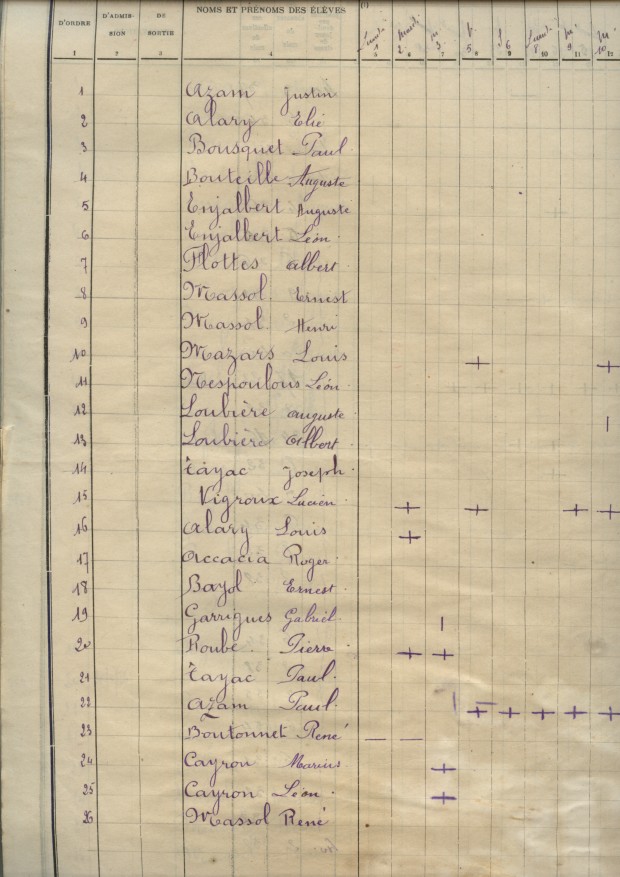 D'ORDRE D'ADMIS- SION DE SORTIE NOMS ET PRÉNOMS DES ÉLÈVES (1)
1 2 3 4 5 6 7 8 9 10 11 12
1 Azam Justin
2 Alary Elie
3 Bousquet Paul
4 Bouteille Auguste
5 Enjalbert Auguste
6 Enjalbert Léon
7 Flottes Albert
8 Massol Ernest
9 Massol Henri
10 Mazars Louis
11 Nespoulous Léon
12 Loubière Auguste
13 Loubière Albert
14 Tayac Joseph
15 Vigroux Lucien
16 Alary Louis
17 Accacia Roger
18 Bayol Ernest
19 Garrigues Gabriel
20 Pierre
21 Tayac Paul
22 Azam Paul
23 Boutonnet René
24 Cayron Marius
25 Cayron Léon
26 Massol René